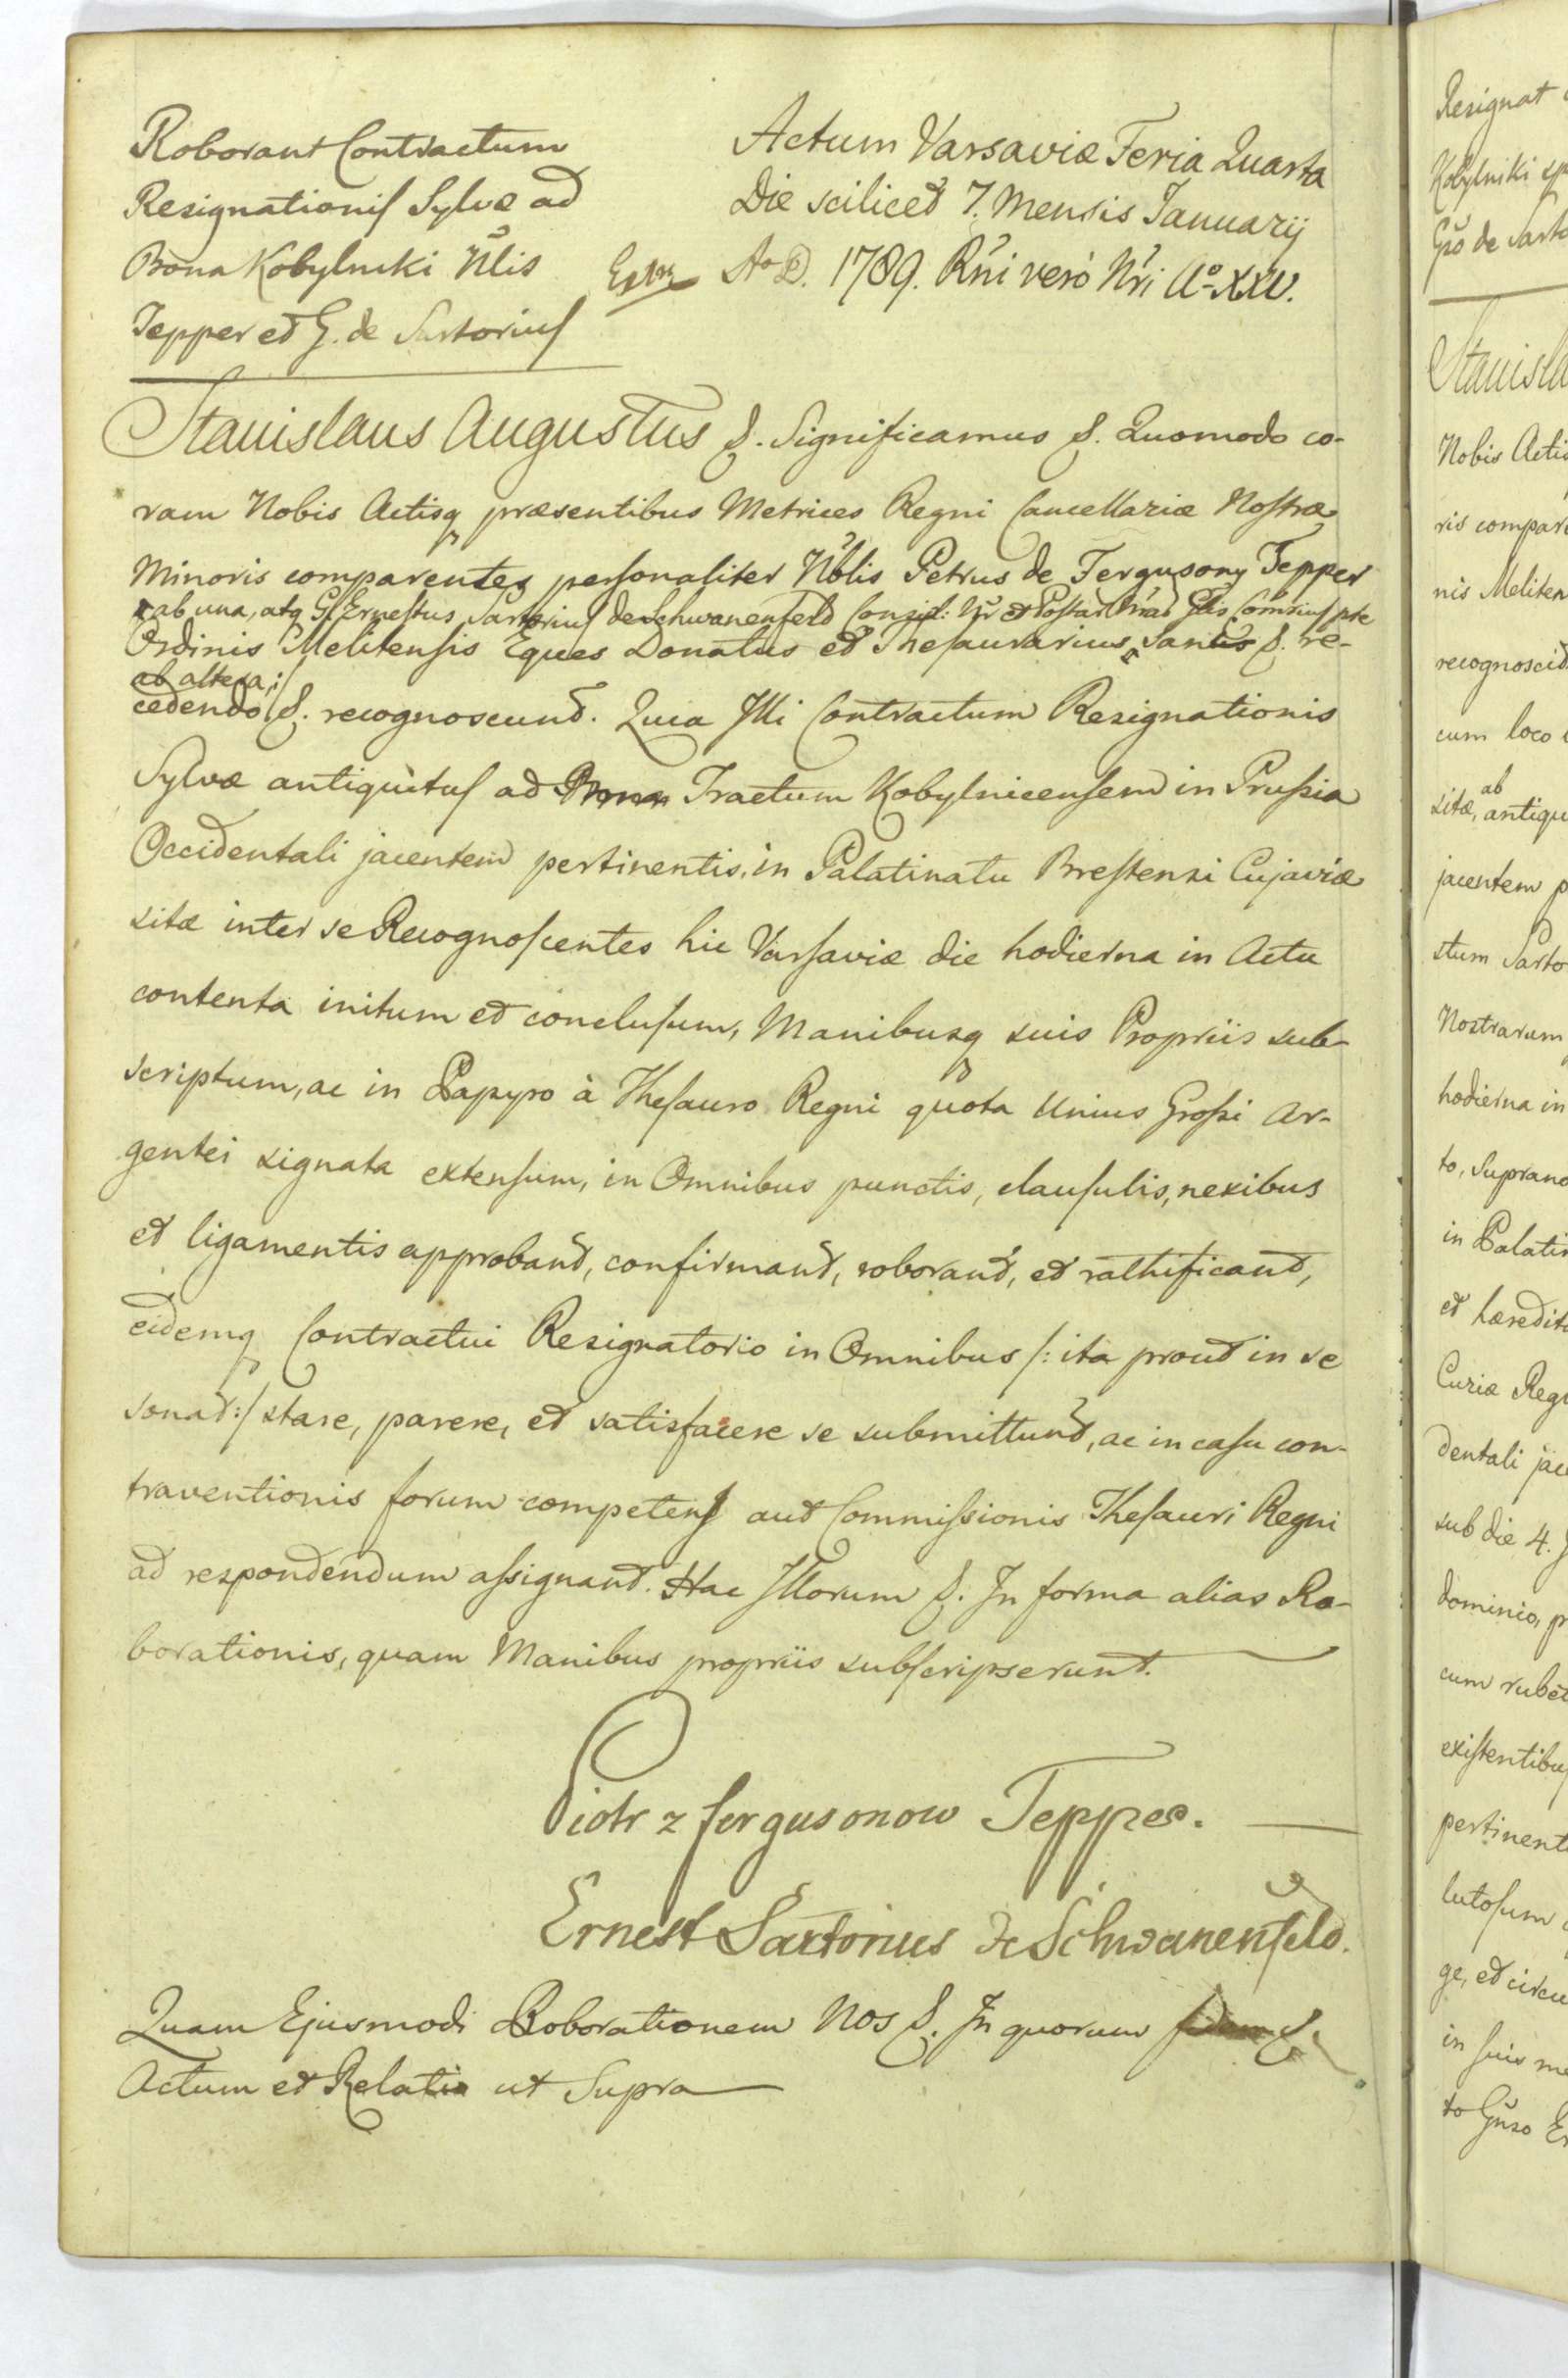 Roborant Contractum
Resignationis Sylvæ ad
Bona Kobylniki Nlis
Tepper et G. de Sartorius
Extr
Actum Varsaviæ Feria Quarta
Die scilicet 7. Mensis Januarij
Ao D. 1789. Rni vero Nri Ao XXV.
Stanislaus Augustus &. Significamus &. Quomodo co-
ram Nobis Actisq præsentibus Metrices Regni Cancellariæ Nostræ
Minoris comparentes personaliter Nblis Petrus de Fergusony Tepper
ab una, atq G. Ernestus Sartorius de Schwanenfeld Consil: Nr et Postar
Ordinis Melitensis Eques Donatus et Thesaurarius, Sani &. re-
ab altera;
cedendo &. recognoscunt. Quia Illi Contractum Resignationis
Sylvæ antiquitus ad Tractum Kobylnicensem in Prussia
Occidentali jacentem pertinentis, in Palatinatu Brestensi Cujaviæ
sitæ inter se Recognoscentes hic Varsaviæ die hodierna in Actu
contenta initum et conclusum, Manibusq suis Propriis sub-
scriptum, ac in Papyro à Thesauro Regni quota Unius Grossi Ar-
gentei signata extensum, in Omnibus punctis, clausulis, nexibus
et ligamentis approbant, confirmant, roborant, et rathificant,
eidemq Contractui Resignatorio in Omnibus /: ita prout in se
sonat :/ stare, parere, et satisfacere se submittunt, ac in casu con-
traventionis forum competens aut Commissionis Thesauri Regni
ad respondendum assignant. Hac Illorum &. In forma alias Ro-
borationis, quam Manibus propriis subscripserunt.
Piotr z fergusonow Tepper.
Ernest Sartorius de Schwanenfeld.
Quam Ejusmodi Roborationem Nos &. In quorum fidem &.
Actum et Relatio ut Supra
Resignat
Kobylniki
Gso de Sarto
Stanisla
Nobis Actis
ris compare
nis Meliten
recognoscit
cum loco
ab
sitæ, antiqu
jacentem p
stum Sarto
Nostrarum
hodierna in
to, Suprano
in Palatin
et hæredita
Curiæ Regi
dentali jac
sub die 4.
dominio, p
cum rubet
existentibus
pertinenti
lutosum
ge, et circu
in suis me
to Gnso Er